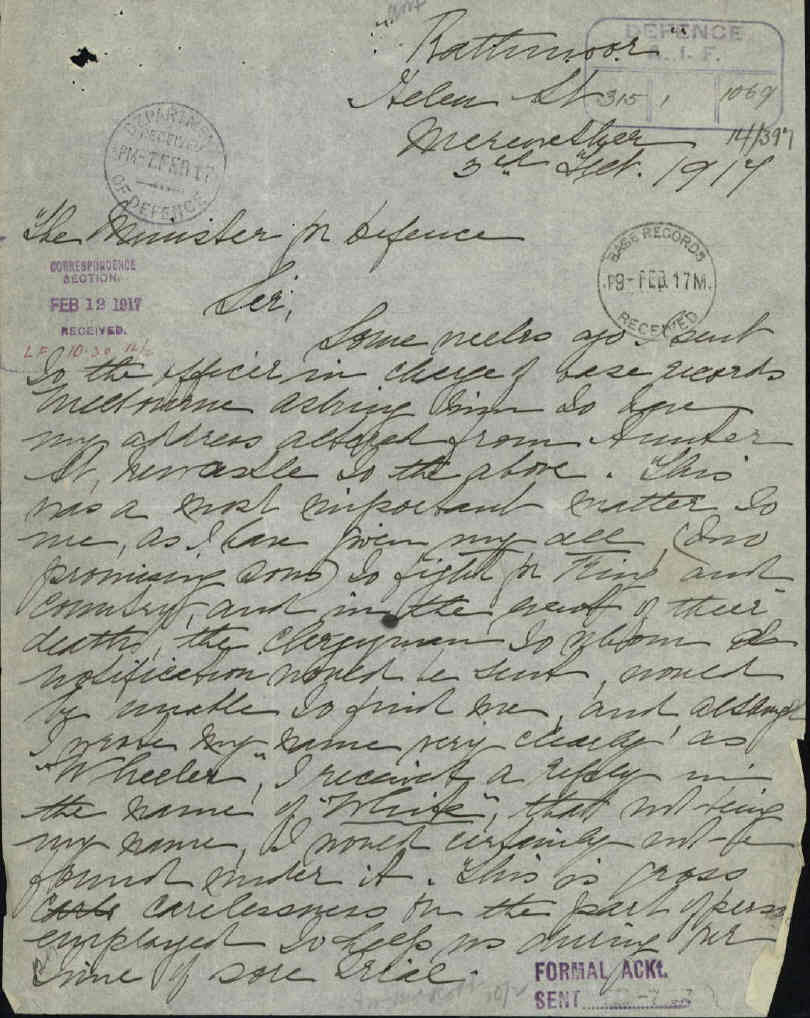 "Rathmoor"
DEFENCE
A. I. F.
Helen St
315 1 1069
Merewether
14/397
3rd Feb. 1917
DEPARTMENT
RECEIVED
PM-7. FEB 17
OF DEFENCE
The Minister for Defence
BASE RECORDS
P9-FEB. 17 M.
RECEIVED
CORRESPONDENCE
SECTION.
FEB 12 1917
RECEIVED.
LF 10.30 12/2
Sir,
Some weeks ago I sent
to the officer in charge of base records
Melbourne asking him to have
my address altered from Hunter
St, Newcastle to the above. This
was a most important matter to
me, as I have given my all, (two
promising sons) to fight for King and
Country, and in the event of their
deaths, the clergyman to whom the
notification would be sent, would
be unable to find me, and although
I wrote my name very clearly as
"Wheeler", I received a reply in
the name of "White", that not being
my name, I would certainly not be
found under it. This is gross
carelessness on the part of persons
employed to help us during our
time of sore trial.
FORMAL ACKt.
SENT